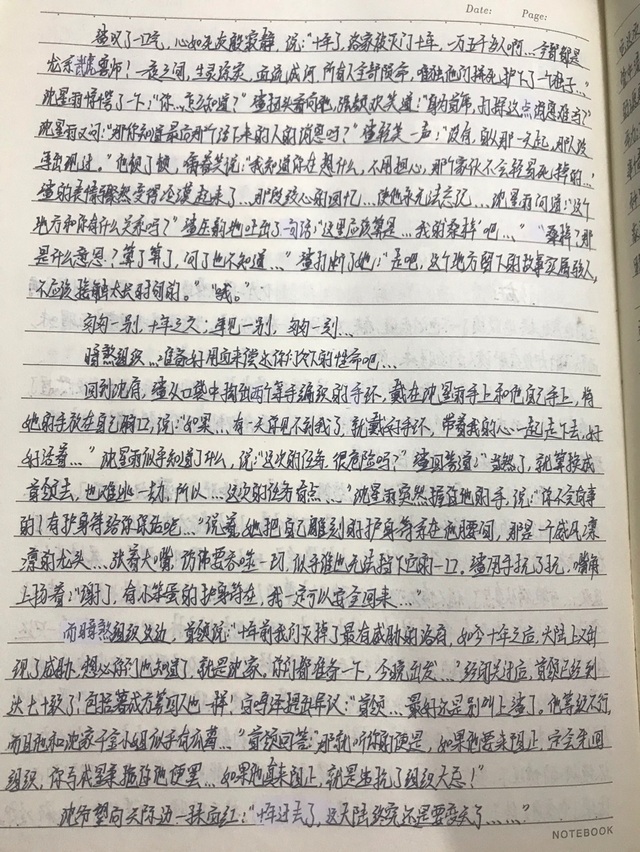 Date: Page:
渣叹了一口气，心如死灰般寂静，说：“十年了，洛家被灭门十年，一万五千多人啊…全部都是
龙系武魂魂师！一夜之间，生灵涂炭，血流成河，所有人全部殒命，唯独他们拼死护下了一个孩子…”
沈星雨愣了一下：“你…怎么知道？”渣扭头看向她，强颜欢笑道：“身为首席，打探这点消息难吗？”
沈星雨又问：“那你知道最后那个活下来的人的消息吗？”渣轻笑一声：“没有，自从那一天起，那人没
再出现过。”他顿了顿，痛苦笑说：“我知道你在想什么，不用担心，那个家伙不会轻易死掉的…”
渣的表情骤然变得冷漠起来了…那段钻心的回忆…使他永无法忘记…沈星雨问道：“这个
地方和你有什么关系吗？”渣生硬地吐出了一句话：“这里应该算是…我的‘桑梓’吧…”“桑梓？那
是什么意思？算了算了，问了也不知道…”渣打断了她：“走吧，这个地方留下的故事实属骇人，
不应该接触太长时间的。”“哦。”
匆匆一别，十年之久；再见一别，匆匆一刻…
暗煞组织…准备好用血来偿还你们欠下的性命吧…
回到沈府，渣从口袋中掏出两个手编织的手环，戴在沈星雨手上和他自己手上，将
她的手放在自己胸口，说：“如果…有一天你见不到我了，就戴好手环，带着我的心一起走下去，好
好活着…”沈星雨似乎知道了什么，说：“这次的任务，很危险吗？”渣回答道：“当然了，就算换成
首领去，也难逃一劫，所以…这次的任务有点…”沈星雨突然握住他的手，说：“你不会有事
的！有护身符给你保佑吧…”说着，她把自己雕刻的护身符系在他腰间，那是一个威风凛
凛的龙头…张着大嘴，仿佛要吞噬一切，似乎谁也无法挡下它的一口。渣用手玩了玩，嘴角
上扬着：“谢了，有小笨蛋的护身符在，我一定可以安全回来…”
而暗煞组织这边，首领说：“十年前我们灭掉了最有威胁的洛府，如今十年之后，大陆上又出
现了威胁，想必你们也知道了，就是沈家。你们都准备一下，今晚出发…”经闭关过后，首领已经到
达七十级了！包括著成方等四人也一样！白鸣泽提出异议：“首领…最好还是别叫上渣了。他等级不行，
而且他和沈家千金小姐似乎有点暧…”首领回答：“那就听你的便是，如果他要来阻止，定会先回
组织，你与戚墨柔拖住他便罢…如果他真来阻止，就是坐抗了组织大忌！”
沈希望向天际边一抹血红：“十年过去了，这大陆终究还是要变天了……”
NOTEBOOK